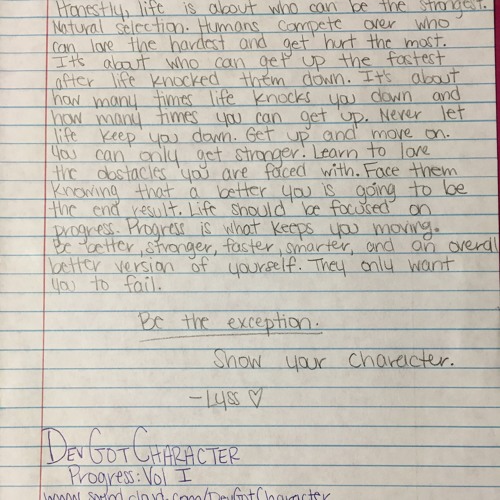 Honestly, life is about who can be the strongest.
Natural selection. Humans compete over who
can love the hardest and get hurt the most.
It's about who can get up the fastest
after life knocked them down. It's about
how many times life knocks you down and
how many times you can get up. Never let
life keep you down. Get up and move on.
You can only get stronger. Learn to love
the obstacles you are faced with. Face them
knowing that a better you is going to be
the end result. Life should be focused on
progress. Progress is what keeps you moving.
Be better, stronger, faster, smarter, and an overall
better version of yourself. They only want
you to fail.
Be the exception.
Show your character.
-Lyss ♡
DEVGOTCHARACTER
Progress: Vol I
www.soundcloud.com/DevGotCharacter